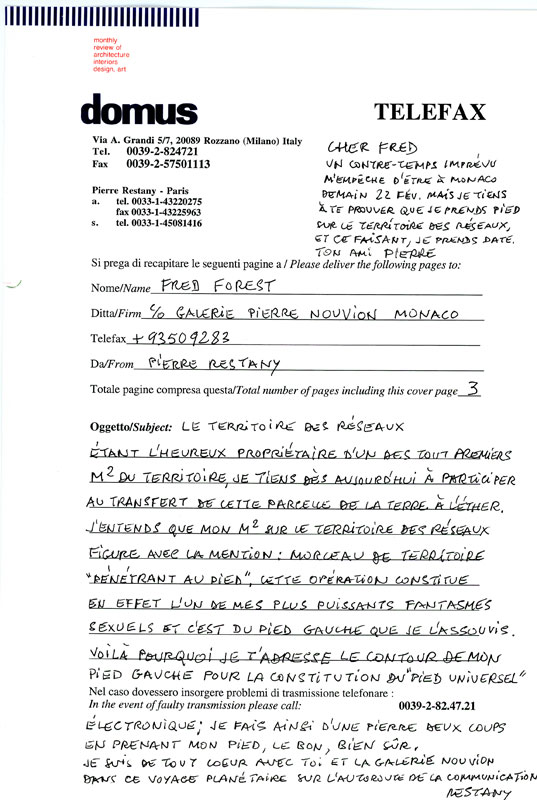 monthly
review of
architecture
interiors
design, art
domus
TELEFAX
Via A. Grandi 5/7, 20089 Rozzano (Milano) Italy
Tel. 0039-2-824721
Fax 0039-2-57501113
Pierre Restany - Paris
a. tel. 0033-1-43220275
fax 0033-1-43225963
s. tel. 0033-1-45081416
CHER FRED
UN CONTRE-TEMPS IMPRÉVU
M'EMPÊCHE D'ÊTRE À MONACO
DEMAIN 22 FÉV. MAIS JE TIENS
À TE PROUVER QUE JE PRENDS PIED
SUR LE TERRITOIRE DES RÉSEAUX,
ET CE FAISANT, JE PRENDS DATE.
TON AMI PIERRE
Si prega di recapitare le seguenti pagine a / Please deliver the following pages to:
Nome/Name FRED FOREST
Ditta/Firm C/O GALERIE PIERRE NOUVION MONACO
Telefax +93509283
Da/From PIERRE RESTANY
Totale pagine compresa questa/Total number of pages including this cover page 3
Oggetto/Subject: LE TERRITOIRE DES RÉSEAUX
ÉTANT L'HEUREUX PROPRIÉTAIRE D'UN DES TOUT PREMIERS
M² DU TERRITOIRE, JE TIENS DÈS AUJOURD'HUI À PARTICIPER
AU TRANSFERT DE CETTE PARCELLE DE LA TERRE À L'ÉTHER.
J'ENTENDS QUE MON M² SUR LE TERRITOIRE DES RÉSEAUX
FIGURE AVEC LA MENTION: MORCEAU DE TERRITOIRE
"PÉNÉTRANT AU PIED", CETTE OPÉRATION CONSTITUE
EN EFFET L'UN DE MES PLUS PUISSANTS FANTASMES
SEXUELS ET C'EST DU PIED GAUCHE QUE JE L'ASSOUVIS.
VOILÀ POURQUOI JE T'ADRESSE LE CONTOUR DE MON
PIED GAUCHE POUR LA CONSTITUTION DU "PIED UNIVERSEL"
Nel caso dovessero insorgere problemi di trasmissione telefonare :
In the event of faulty transmission please call: 0039-2-82.47.21
ÉLECTRONIQUE; JE FAIS AINSI D'UNE PIERRE DEUX COUPS
EN PRENANT MON PIED, LE BON, BIEN SÛR.
JE SUIS DE TOUT COEUR AVEC TOI ET LA GALERIE NOUVION
DANS CE VOYAGE PLANÉTAIRE SUR L'AUTOROUTE DE LA COMMUNICATION
RESTANY